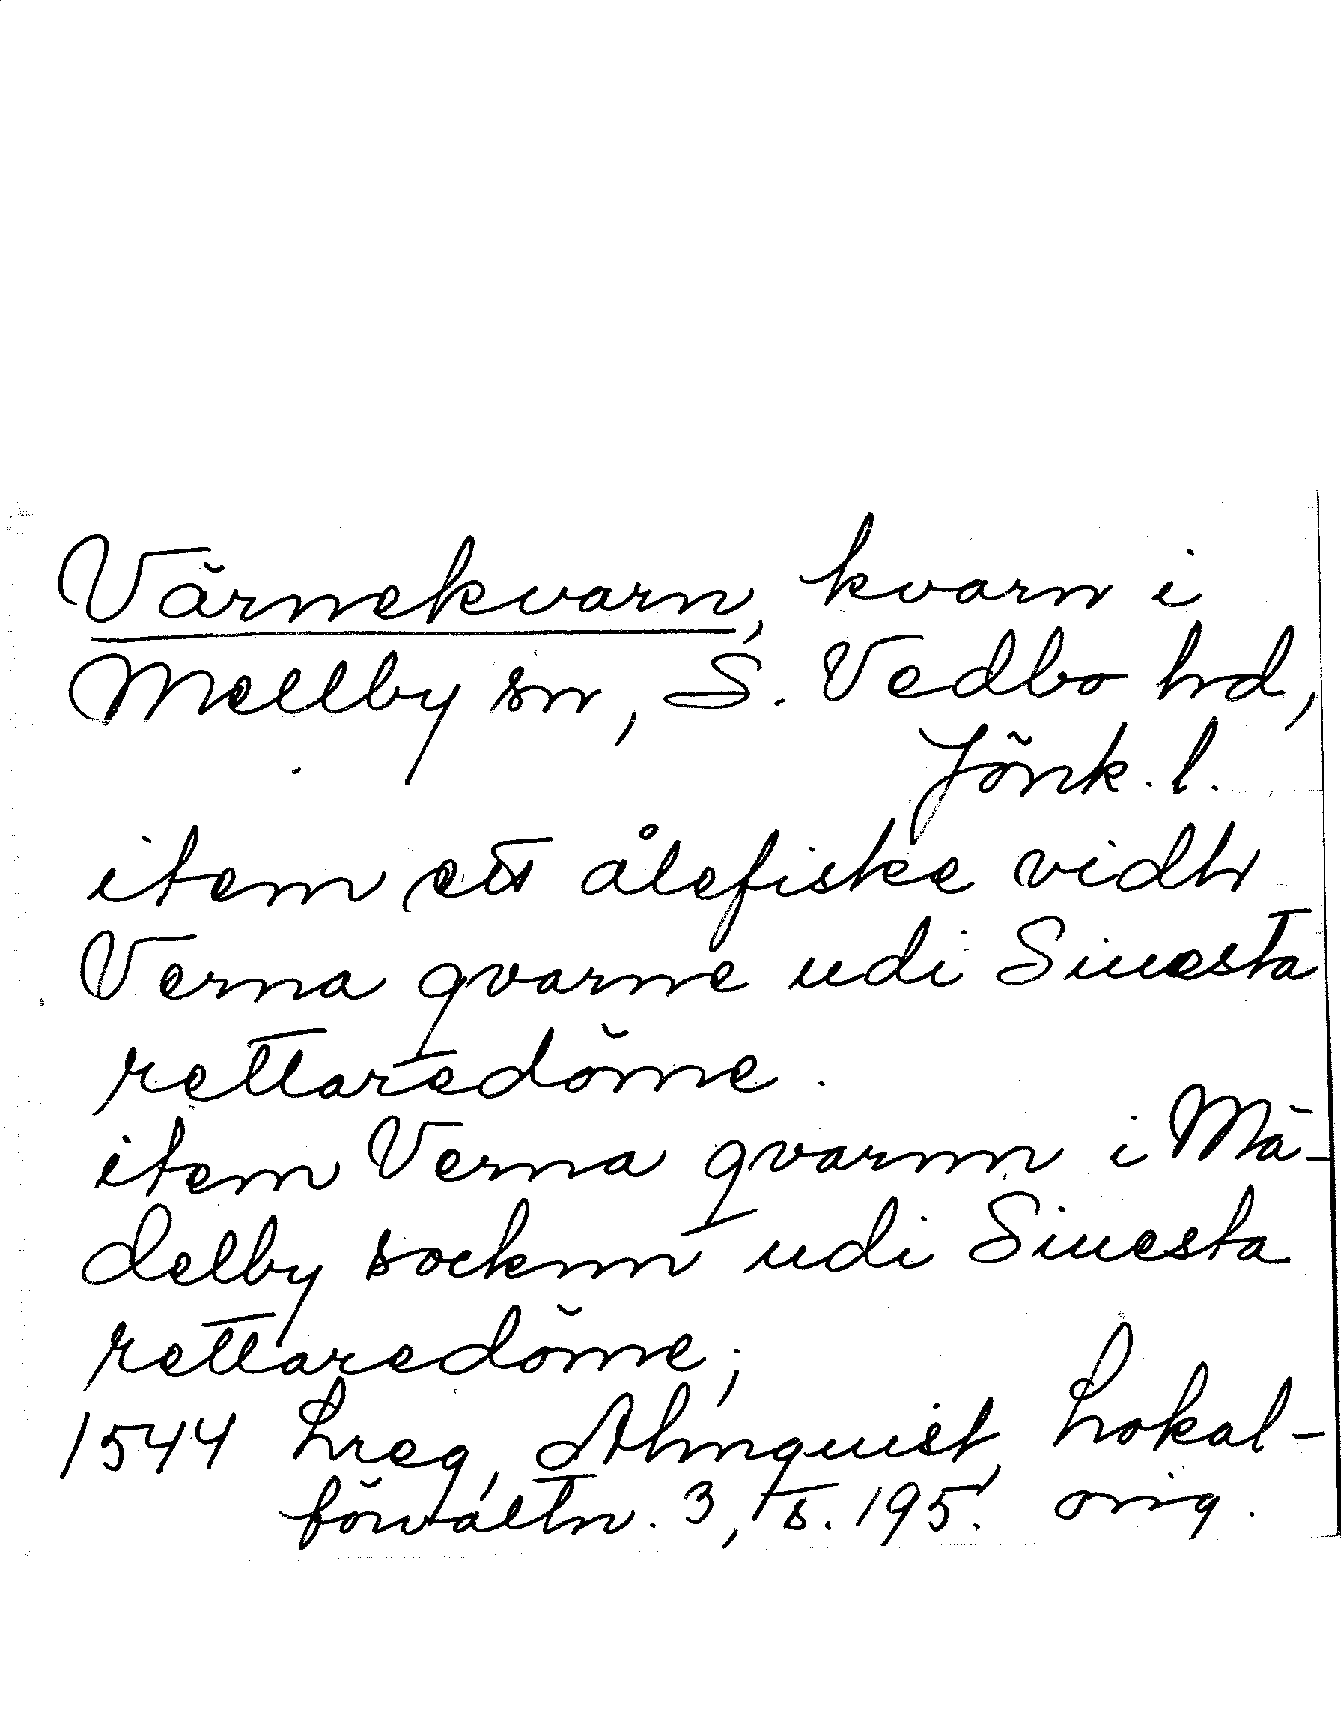 Värnekvarn, kvarn i
Mellby sn, S. Vedbo hd,
Jönk. l.
item ett ålefiske vidh
Verna qvarne udi Siuesta
rettaredöme.
item Verna qvarnn i Mä-
delby socknn udi Siuesta
rettaredöme;
1544 Lreg, Almquist, Lokal-
förvaltn. 3, s. 195. orig.